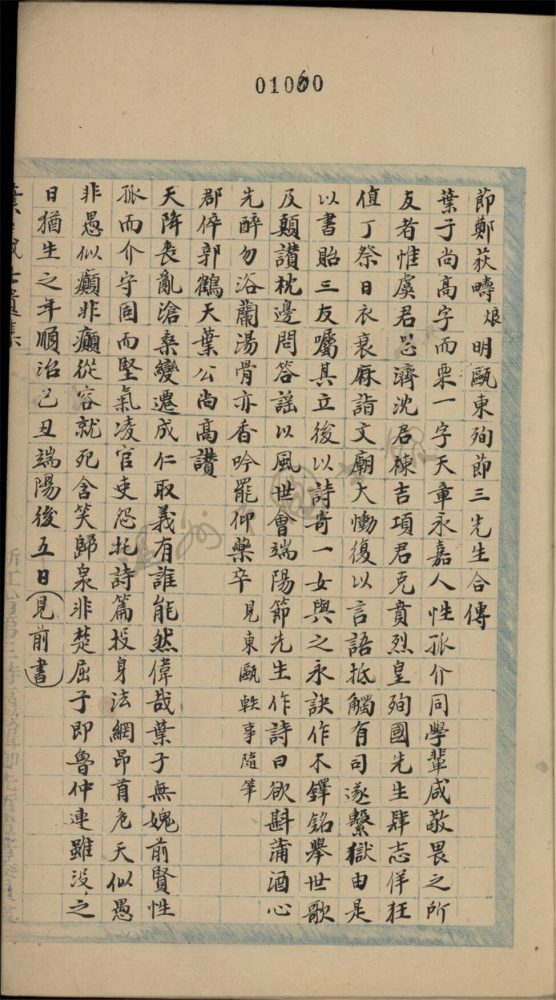 01060
節鄭荻疇烺明甌東殉節三先生合傳
葉子尚高字而栗一字天章永嘉人性孤介同學輩咸敬畏之所
友者惟虞君君濟沈君棟吉項君克賁烈皇殉國先生肆志佯狂
值丁祭日衣衰麻詣文廟大慟復以言語抵觸有司遂繫獄由是
以書貽三友囑其立後以詩寄一女與之永訣作木鐸銘舉世歌
及顛讚枕邊問答謡以風世會端陽節先生作詩曰欲斟蒲酒心
先醉勿浴蘭湯骨亦香吟罷仰藥卒 見東甌軼事隨筆
郡倅郭鶴天葉公尚高讚
天降喪亂滄桑變遷成仁取義有誰能然偉哉葉子無媿前賢性
孤而介守固而堅氣凌官吏怨托詩篇投身法網昂首危天似愚
非愚似癲非癲從容就死含笑歸泉非楚屈子即魯仲連雖沒之
日猶生之年順治己丑端陽後五日（見前書）